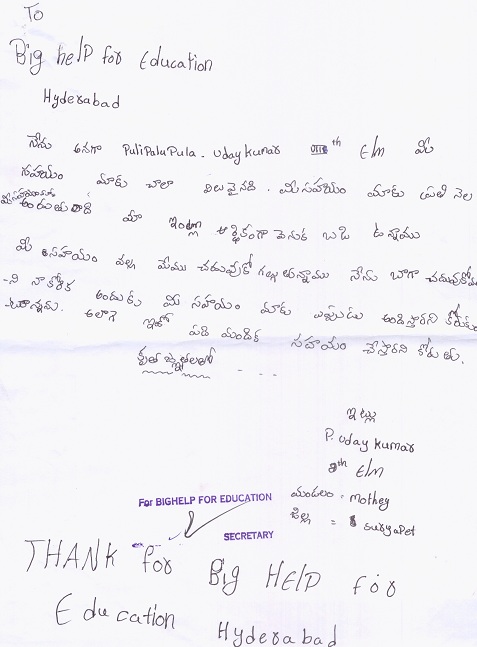 To
Big help for Education
Hyderabad
నేను అనగా Pulipalupula. Uday kumar th E/m మీ
సహయం మాకు చాలా విలువైనది. మీ సహయం మాకు ప్రతి నెల
అందుతుంది మా ఇంట్లో ఆర్థికంగా వెనుక బడి ఉన్నాము
మీ సహాయం వల్ల మేము చదువుకో గల్గు తున్నాము నేను బాగా చదువుకోవా
-లని నా కోరిక అందుకు మీ సహాయం మాకు ఎప్పుడు ఉండిస్తారని కోరుకుం
-టున్నాను. అలాగే ఇంకో పది మందికి సహాయం చేస్తారని కోరు తు.
కృత జ్ఞతలతో ...
ఇట్లు
P. Uday kumar
9th E/m
మండలం : mothey
జిల్లా = suryapet
For BIGHELP FOR EDUCATION
SECRETARY
THANK for Big HELP for
Education Hyderabad